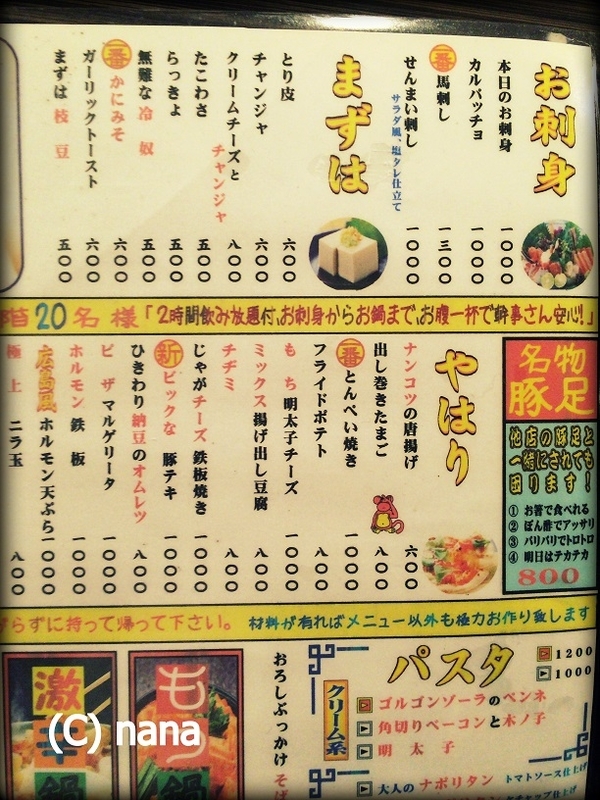 お刺身
本日のお刺身 一〇〇〇
カルパッチョ 一〇〇〇
一番 馬刺し 一三〇〇
せんまい刺し 一〇〇〇
サラダ風、塩タレ仕立て
まずは
とり皮 六〇〇
チャンジャ 六〇〇
クリームチーズとチャンジャ 八〇〇
たこわさ 五〇〇
らっきょ 五〇〇
無難な冷奴 五〇〇
一番 かにみそ 六〇〇
ガーリックトースト 六〇〇
まずは枝豆 五〇〇
階20名様「2時間飲み放題付、お刺身からお鍋まで、お腹一杯で幹事さん安心!」
名物
豚足
他店の豚足と
一緒にされても
困ります!
① お箸で食べれる
② ぽん酢でアッサリ
③ パリパリでトロトロ
④ 明日はテカテカ
800
やはり
ナンコツの唐揚げ 六〇〇
出し巻きたまご 八〇〇
一番 とんぺい焼き 一〇〇〇
フライドポテト 八〇〇
もち明太子チーズ 一〇〇〇
ミックス揚げ出し豆腐 八〇〇
チヂミ 八〇〇
じゃがチーズ鉄板焼き 一〇〇〇
新 ビックな豚テキ 一〇〇〇
ひきわり納豆のオムレツ 八〇〇
ピザマルゲリータ 一〇〇〇
ホルモン鉄板 一〇〇〇
広島風ホルモン天ぷら 一〇〇〇
極上ニラ玉 八〇〇
らずに持って帰って下さい。 材料が有ればメニュー以外も極力お作り致します
パスタ
1200
1000
クリーム系
ゴルゴンゾーラのペンネ
角切りベーコンと木ノ子
明太子
大人のナポリタン トマトソース仕上げ
おろしぶっかけそば
もつ鍋
激辛鍋
(C) nana